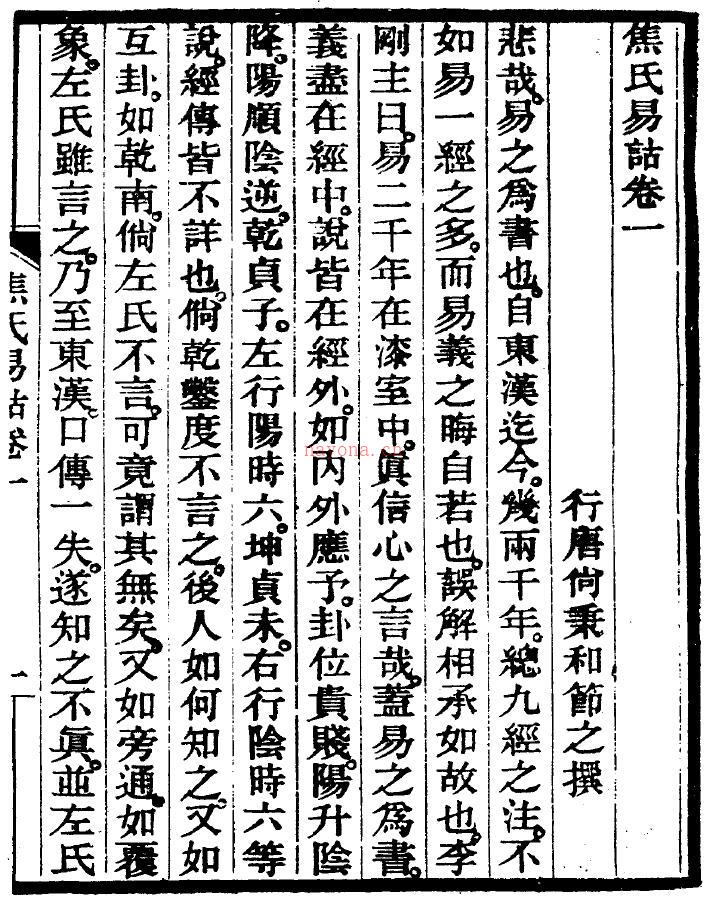 焦氏易詁卷一
行唐尙秉和節之撰
悲哉。易之爲書也。自東漢迄今。幾兩千年。總九經之注。不
如易一經之多。而易義之晦自若也。誤解相承如故也。李
剛主曰。易二千年在漆室中。眞信心之言哉。蓋易之爲書。
義盡在經中。說皆在經外。如内外應予。卦位貴賤。陽升陰
降。陽順陰逆。乾貞子。左行陽時六。坤貞未。右行陰時六等
說。經傳皆不詳也。倘乾鑿度不言之。後人如何知之。又如
互卦。如乾南。倘左氏不言。可竟謂其無矣。又如旁通。如覆
象。左氏雖言之。乃至東漢。口傳一失。遂知之不眞。並左氏
焦氏易詁卷一
一
nayona.cn